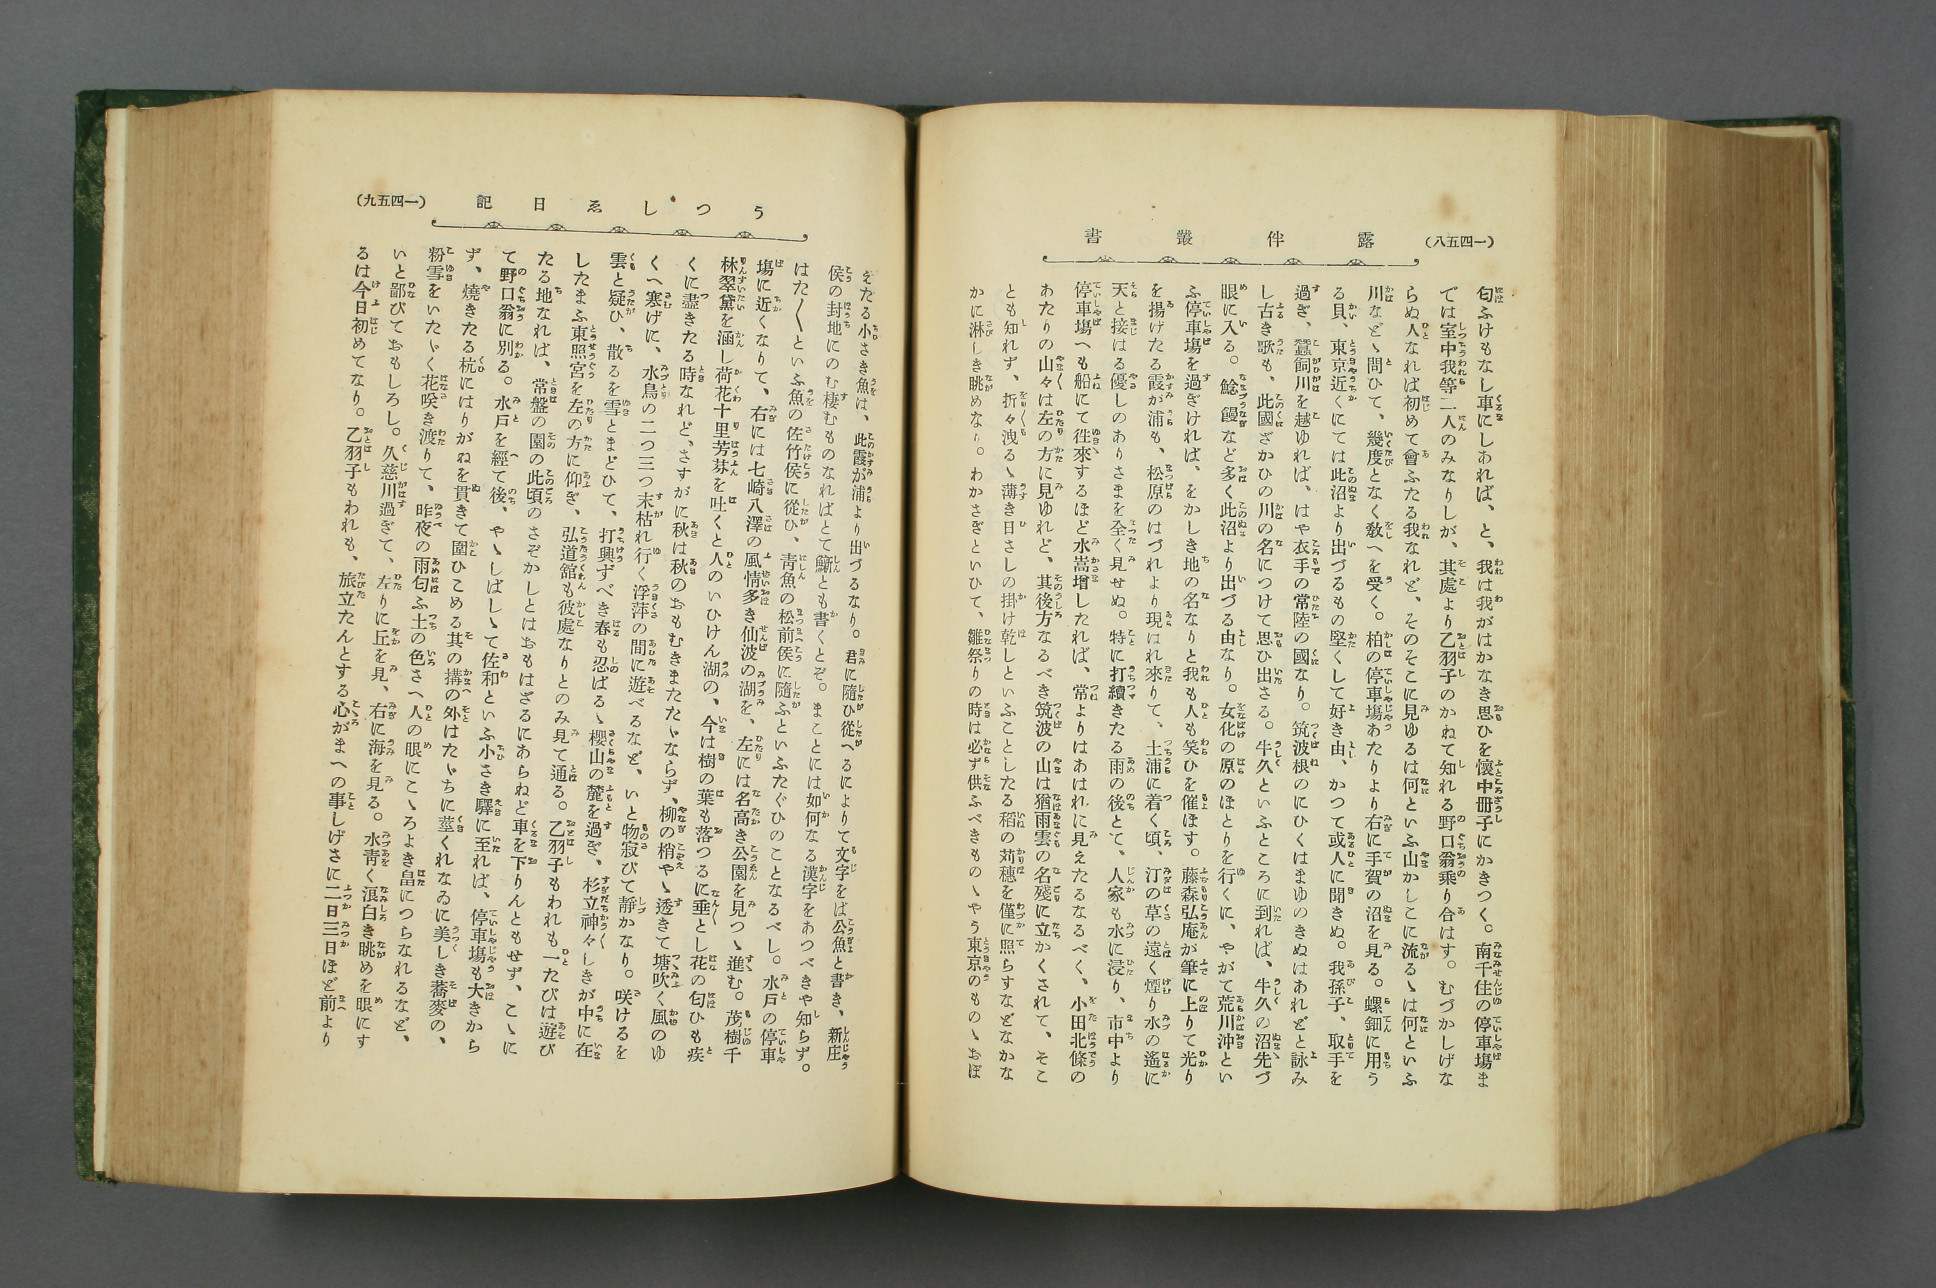 (一四五八)
露伴叢書
匂ふけもなし車にしあれば、と、我は我がはかなき思ひを懷中册子にかきつく。南千住の停車塲ま
では室中我等二人のみなりしが、其處より乙羽子のかねて知れる野口翁乘り合はす。むづかしげな
らぬ人なれば初めて會ふたる我なれど、そのそこに見ゆるは何といふ山かしこに流るゝは何といふ
川などゝ問ひて、幾度となく敎へを受く。柏の停車塲あたりより右に手賀の沼を見る。螺鈿に用う
る貝、東京近くにては此沼より出づるもの堅くして好き由、かつて或人に聞きぬ。我孫子、取手を
過ぎ、蠶飼川を越ゆれば、はや衣手の常陸の國なり。筑波根のにひくはまゆのきぬはあれどと詠み
し古き歌も、此國ざかひの川の名につけて思ひ出さる。牛久といふところに到れば、牛久の沼先づ
眼に入る。鯰鰻など多く此沼より出づる由なり。女化の原のほとりを行くに、やがて荒川沖とい
ふ停車塲を過ぎければ、をかしき地の名なりと我も人も笑ひを催ほす。藤森弘庵が筆に上りて光り
を揚げたる霞が浦も、松原のはづれより現はれ來りて、土浦に着く頃、汀の草の遠く煙り水の遙に
天と接はる優しのありさまを全く見せぬ。特に打續きたる雨の後とて、人家も水に浸り、市中より
停車塲へも船にて徃來するほど水嵩增したれば、常よりはあはれに見えたるなるべく、小田北條の
あたりの山々は左の方に見ゆれど、其後方なるべき筑波の山は猶雨雲の名殘に立かくされて、そこ
とも知れず、折々洩るゝ薄き日さしの掛け乾しといふことしたる稻の苅穗を僅に照らすなどなかな
かに淋しき眺めなり。わかさぎといひて、雛祭りの時は必ず供ふべきものゝやう東京のものゝおぼ
うつしゑ日記
(一四五九)
えたる小さき魚は、此霞が浦より出づるなり。君に隨ひ從へるによりて文字をば公魚と書き、新庄
侯の封地にのむ棲むものなればとて鱮とも書くとぞ。まことには如何なる漢字をあつべきや知らず。
はた〱といふ魚の佐竹侯に從ひ、靑魚の松前侯に隨ふといふたぐひのことなるべし。水戶の停車
塲に近くなりて、右には七崎八澤の風情多き仙波の湖を、左には名高き公園を見つゝ進む。茂樹千
林翠黛を涵し荷花十里芳菸を吐くと人のいひけん湖の、今は樹の葉も落つるに垂とし花の匂ひも疾
くに盡きたる時なれど、さすがに秋は秋のおもむきまたたゞならず、柳の梢やゝ透きて塘吹く風のゆ
くへ寒げに、水鳥の二つ三つ末枯れ行く浮萍の間に遊べるなど、いと物寂びて靜かなり。咲けるを
雲と疑ひ、散るを雪とまどひて、打興ずべき春も忍ばるゝ櫻山の麓を過ぎ、杉立神々しきが中に在
したまふ東照宮を左の方に仰ぎ、弘道舘も彼處なりとのみ見て通る。乙羽子もわれも一たびは遊び
たる地なれば、常盤の園の此頃のさぞかしとはおもはざるにあらねど車を下りんともせず、こゝに
て野口翁に別る。水戶を經て後、やゝしばしゝて佐和といふ小さき驛に至れば、停車塲も大きから
ず、燒きたる杭にはりがねを貫きて圍ひこめる其の搆の外はたゞちに莖くれなゐに美しき蕎麥の、
粉雪をいたゞく花咲き渡りて、昨夜の雨匂ふ土の色さへ人の眼にこゝろよき畠につらなれるなど、
いと鄙びておもしろし。久慈川過ぎて、左りに丘を見、右に海を見る。水靑く浪白き眺めを眼にす
るは今日初めてなり。乙羽子もわれも、旅立たんとする心がまへの事しげさに二日三日ほど前より